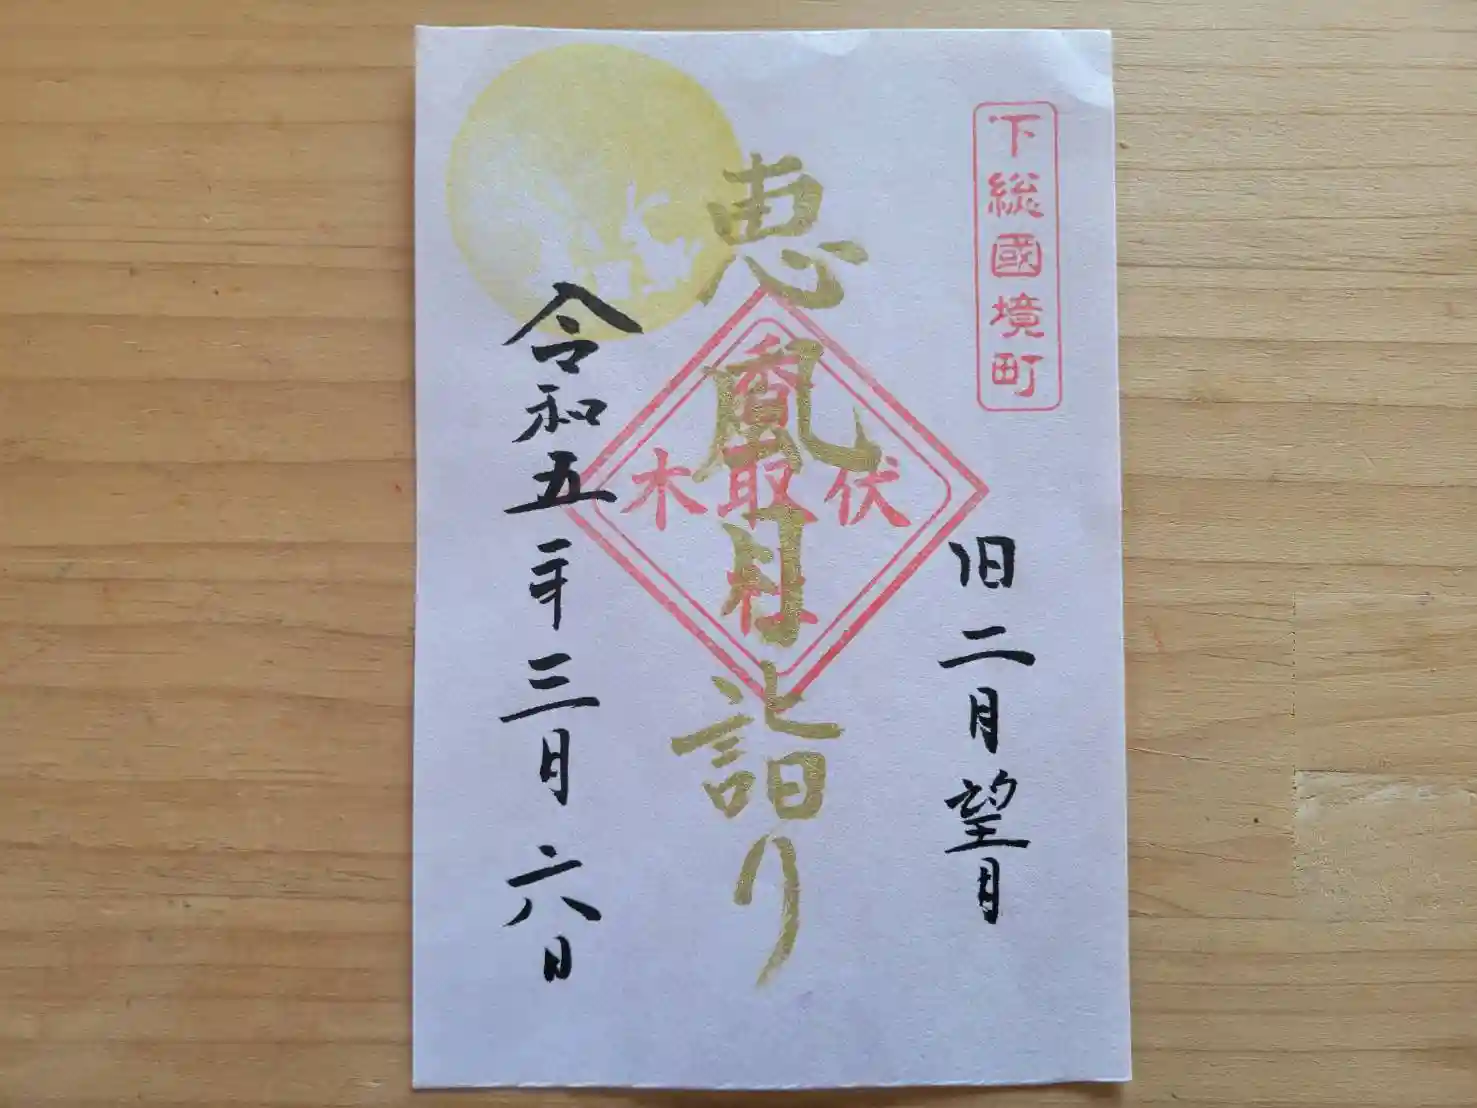 下総國境町
旧二月望月
恵風月詣り
伏木
香取社
令和五年三月六日